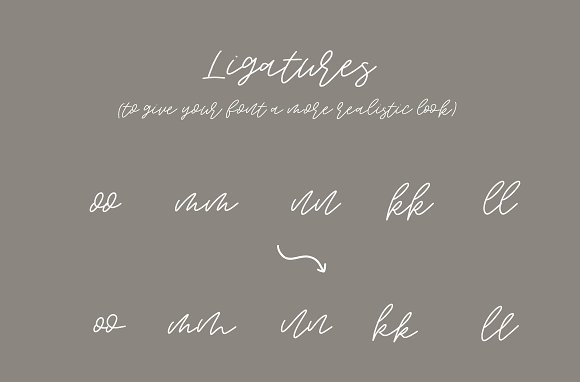 Ligatures
(to give your font a more realistic look)
oo mm nn kk ll
oo mm nn kk ll